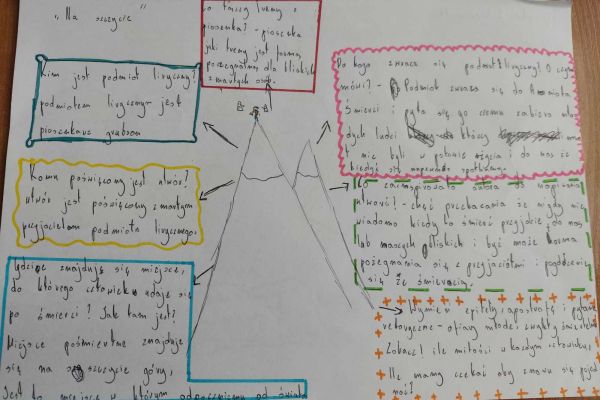 „Na szczycie"
co łączy tureny z
piosenką? - piosenka
jaki tureny jest formą
pożegnalną dla bliskich
zmarłych osób.
Kim jest podmiot liryczny?
podmiotem lirycznym jest
piosenkarz grubson
Komu poświęcony jest utwór?
utwór jest poświęcony zmarłym
przyjacielom podmiotu lirycznego.
Gdzie znajduje się miejsce,
do którego człowiek udaje się
po śmierci? Jak tam jest?
Miejsce pośmiertne znajduje
się na szczycie góry,
Jest to miejsce w którym odpoczniemy od świata
Do kogo zwraca się podmiot liryczny? O czym
mówi? - Podmiot zwraca się do
śmierci pyta się go czemu zabiera mło
dych ludzi którzy
nie byli w połowie życia i do nas że
kiedyś się naprawdę spotkamy.
Co zainspirowało autora do napisania
utworu? - chęć przekazania że nigdy nie
wiadomo kiedy to śmierć przyjdzie do nas
lub naszych bliskich i być może forma
pożegnania się z przyjaciółmi i pogodzenie
się ze śmiercią.
Wymień epitety, apostrofą i pytanie
retoryczne - ofiary młode, zwykły śmiertelnik
Zobacz! ile miłości w każdym człowieku,
Ile mamy czekać aby znowu się pojed
nać?